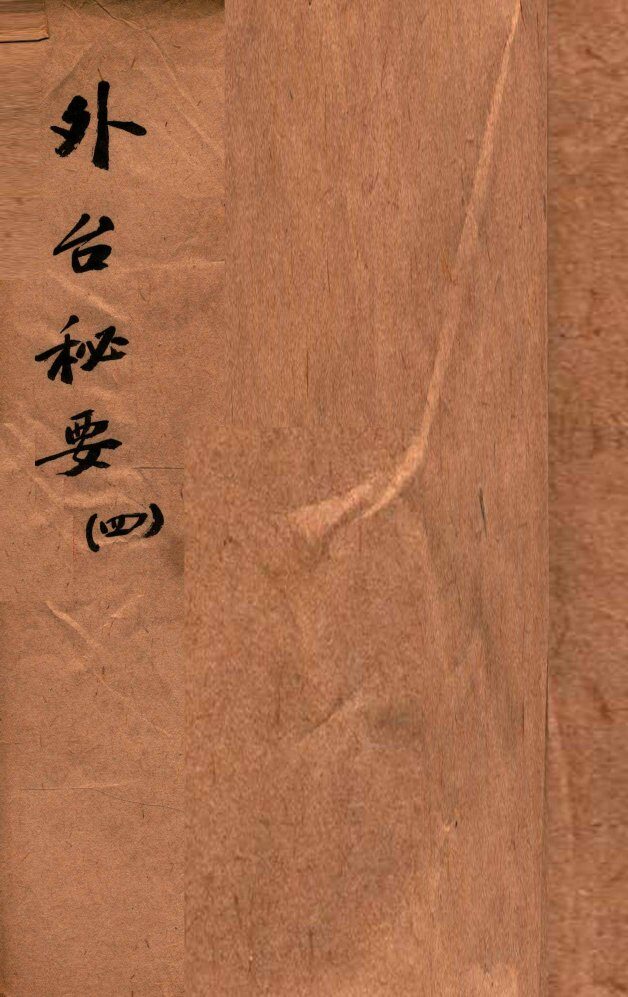 外台秘要(四)